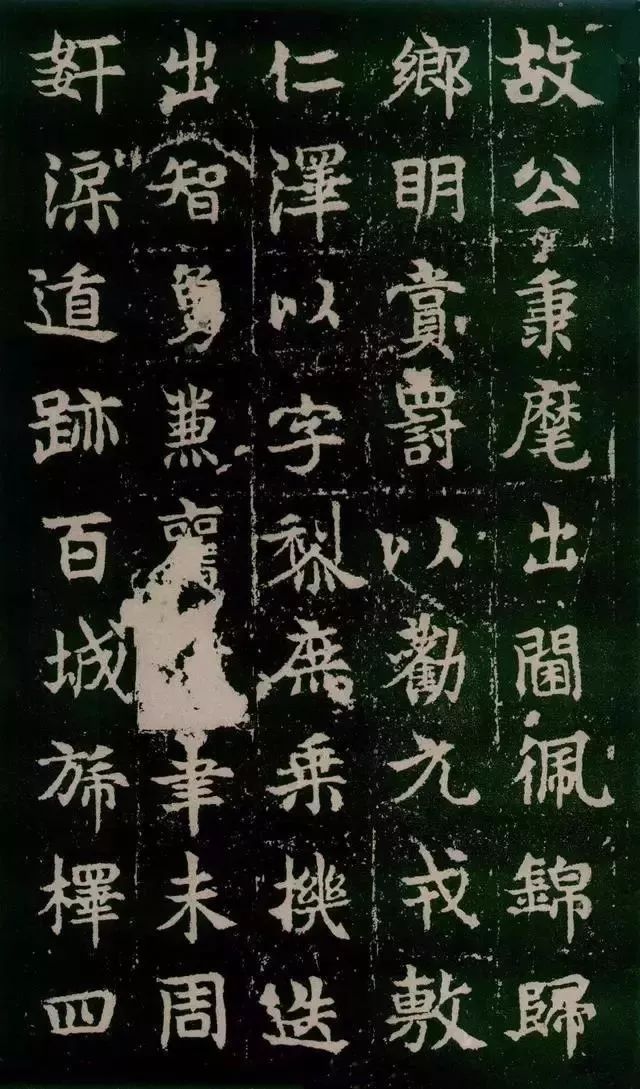 故公秉麾出閫佩錦歸
鄉明賞罸以勸元戎敷
仁澤以字黎庶乘機迭
出智勇兼聿未周
奸深遁跡百城斾檡四